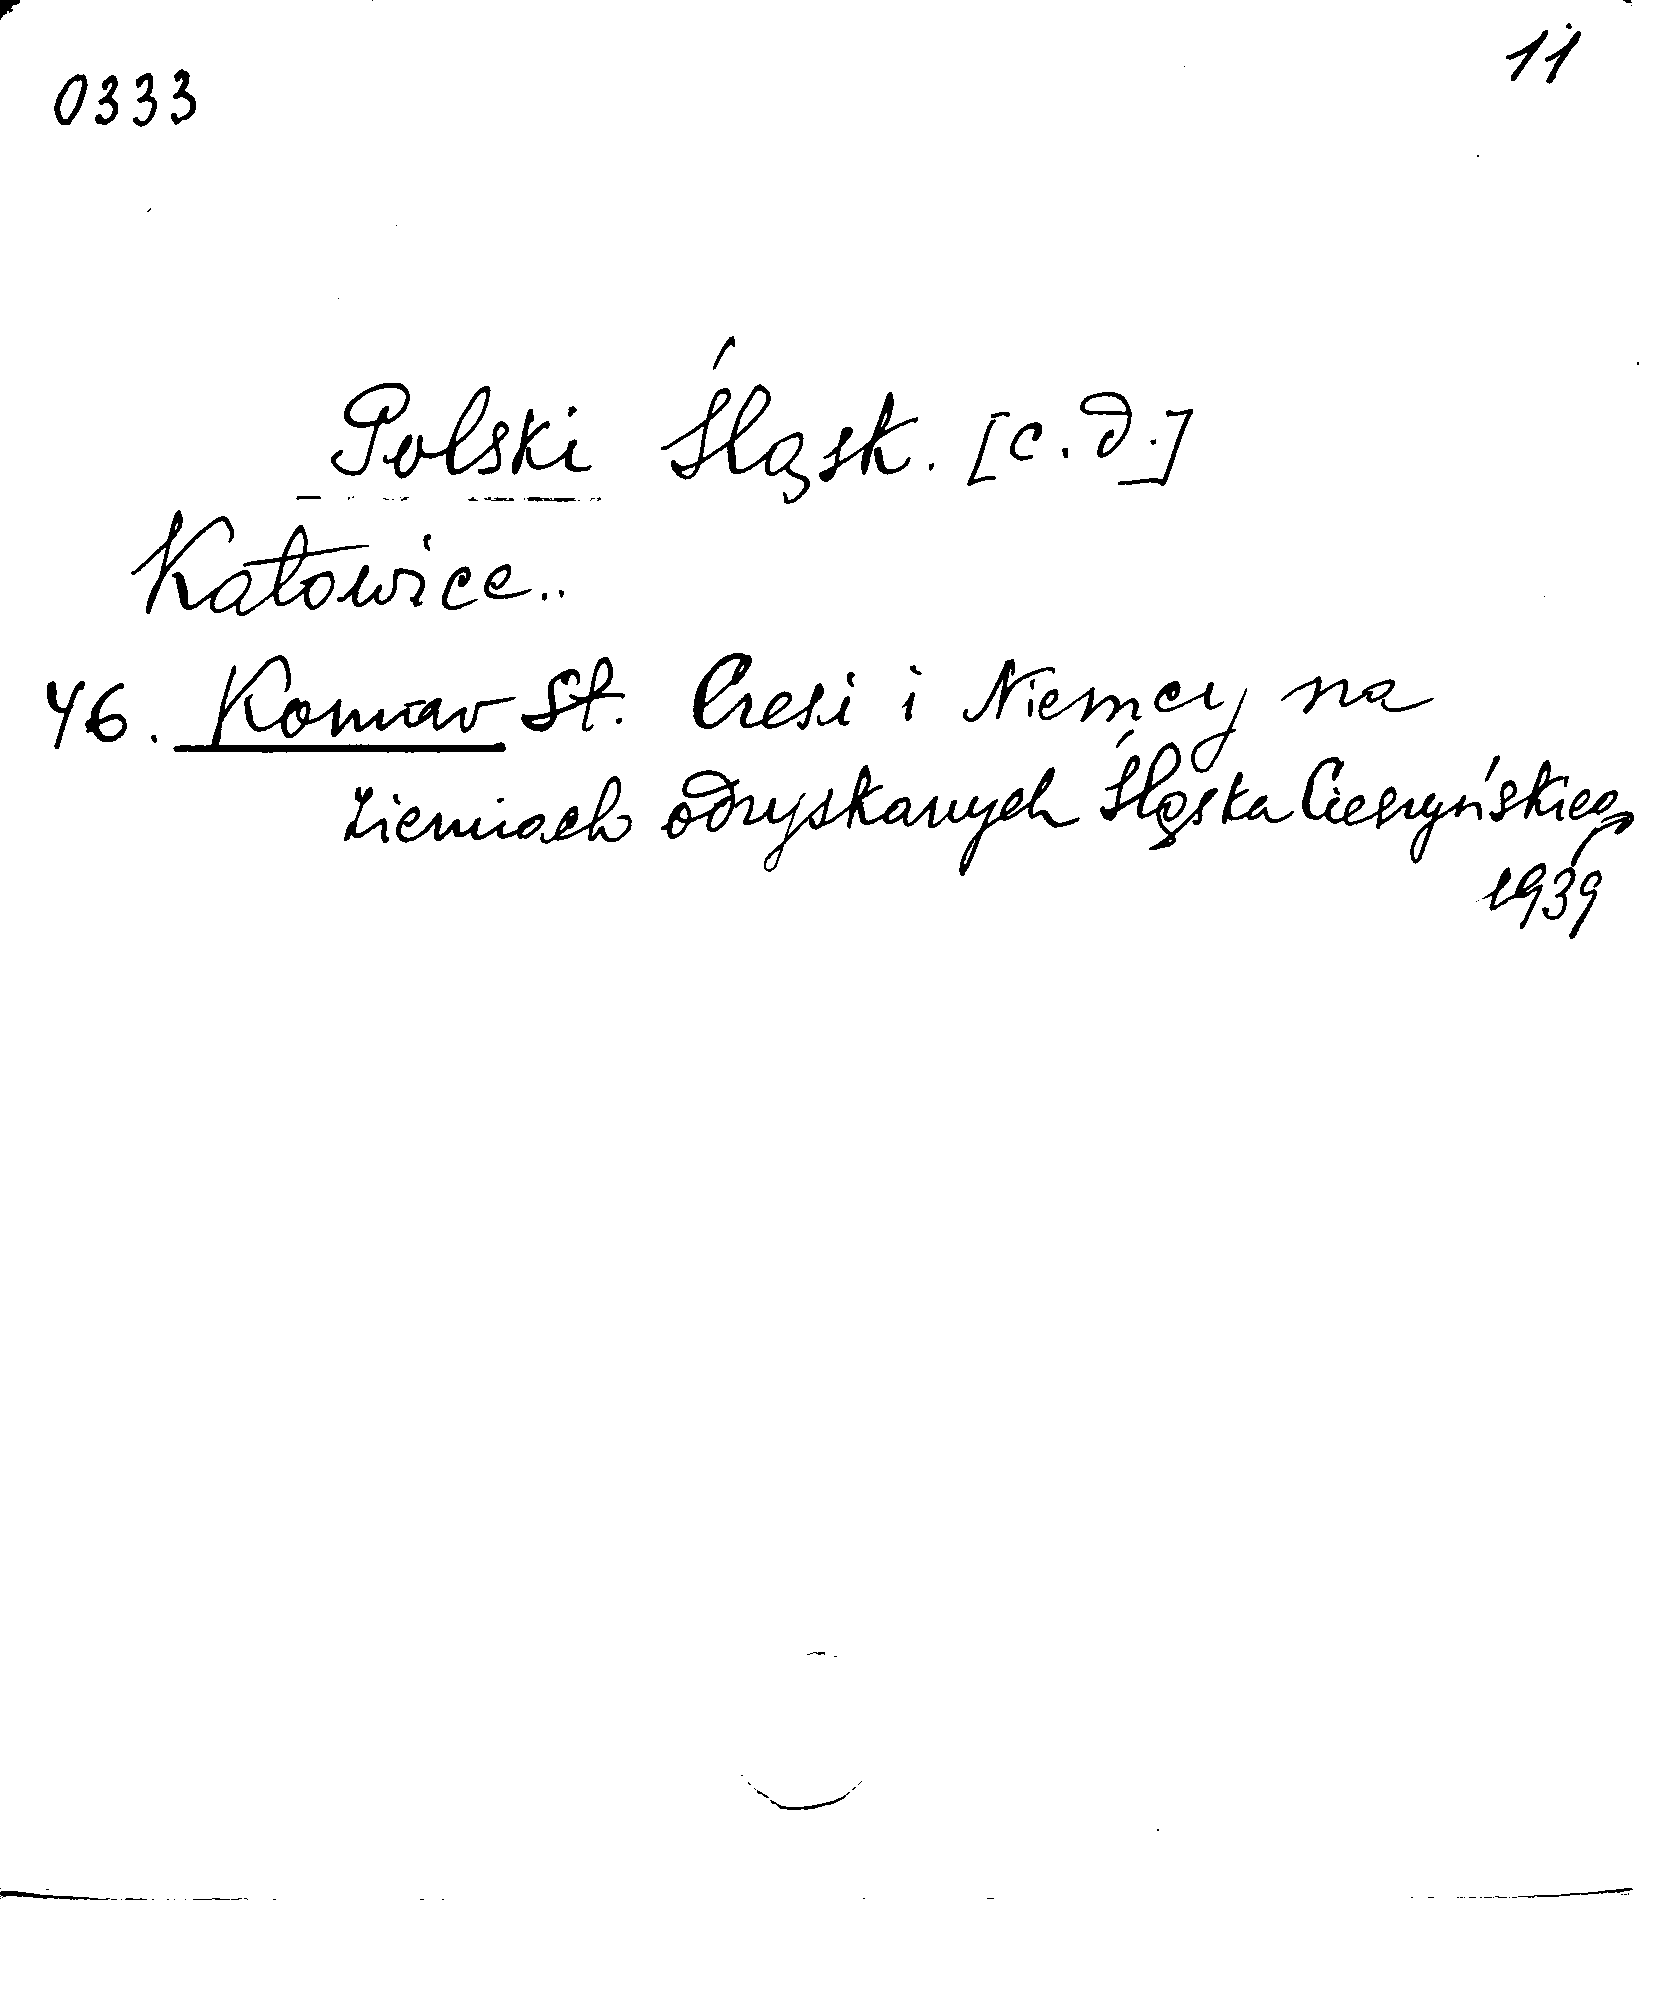 0333
11
Polski Śląsk. [c.d.]
Katowice..
46. Komar St. Czesi i Niemcy na
ziemiach odzyskanych Śląska Cieszyńskiego
1939